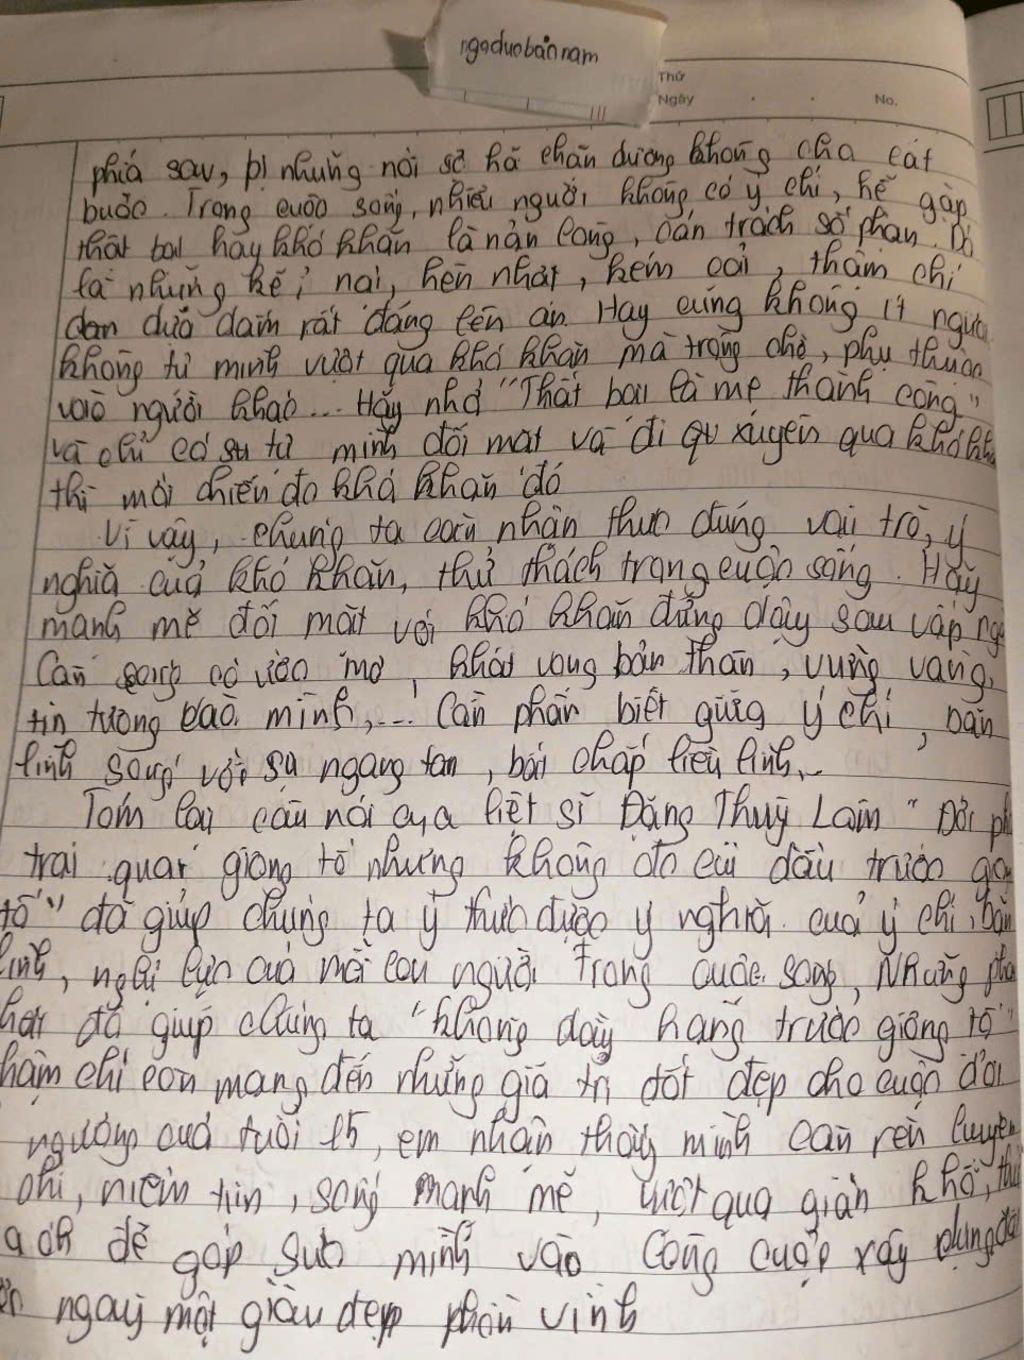 ngaduobannam
Thứ
Ngày . . No.
phía sau, bị những nỗi sợ hã chắn đường không cho cất
bước. Trong cuộc sống, nhiều người không có ý chí, hễ gặp
thất bại hay khó khăn là nản lòng, oán trách số phận. Đó
là những kẻ ỉ nại, hèn nhát, kém cỏi, thậm chí
dựa dẫm rất đáng lên án. Hay cũng không ít người
không tự mình vượt qua khó khăn mà trông chờ, phụ thuộc
vào người khác... Hãy nhớ "Thất bại là mẹ thành công"
và chỉ có sự tự mình đối mặt và đi xuyên qua khó
thì mới chiến đo khó khăn đó
Vì vậy, chúng ta cần nhận thức đúng vai trò, ý
nghĩa của khó khăn, thử thách trong cuộc sống. Hãy
mạnh mẽ đối mặt với khó khăn đứng dậy sau vấp
Cần có ước mơ, khát vọng bản thân, vững vàng,
tin tưởng vào mình,... Cần phân biệt giữa ý chí, bản
lĩnh sống với sự ngang tàn, bất chấp liều lĩnh...
Tóm lại câu nói của liệt sĩ Đặng Thuỳ Lâm "Đời
trải qua giông tố nhưng không đo cúi đầu trước
tố" đã giúp chúng ta ý thức được ý nghĩa của ý chí, bản
lĩnh, nghị lực của mỗi con người trong cuộc sống, Những
đã giúp chúng ta "không đầy hàng trước giông tố"
còn mang đến những giá trị tốt đẹp cho cuộc đời
ngưỡng cửa tuổi 15, em nhận thấy mình cần rèn luyện
chí, niềm tin, sống mạnh mẽ, vượt qua gian khổ,
để góp sức mình vào công cuộc xây dựng
ngày một giàu đẹp phồn vinh